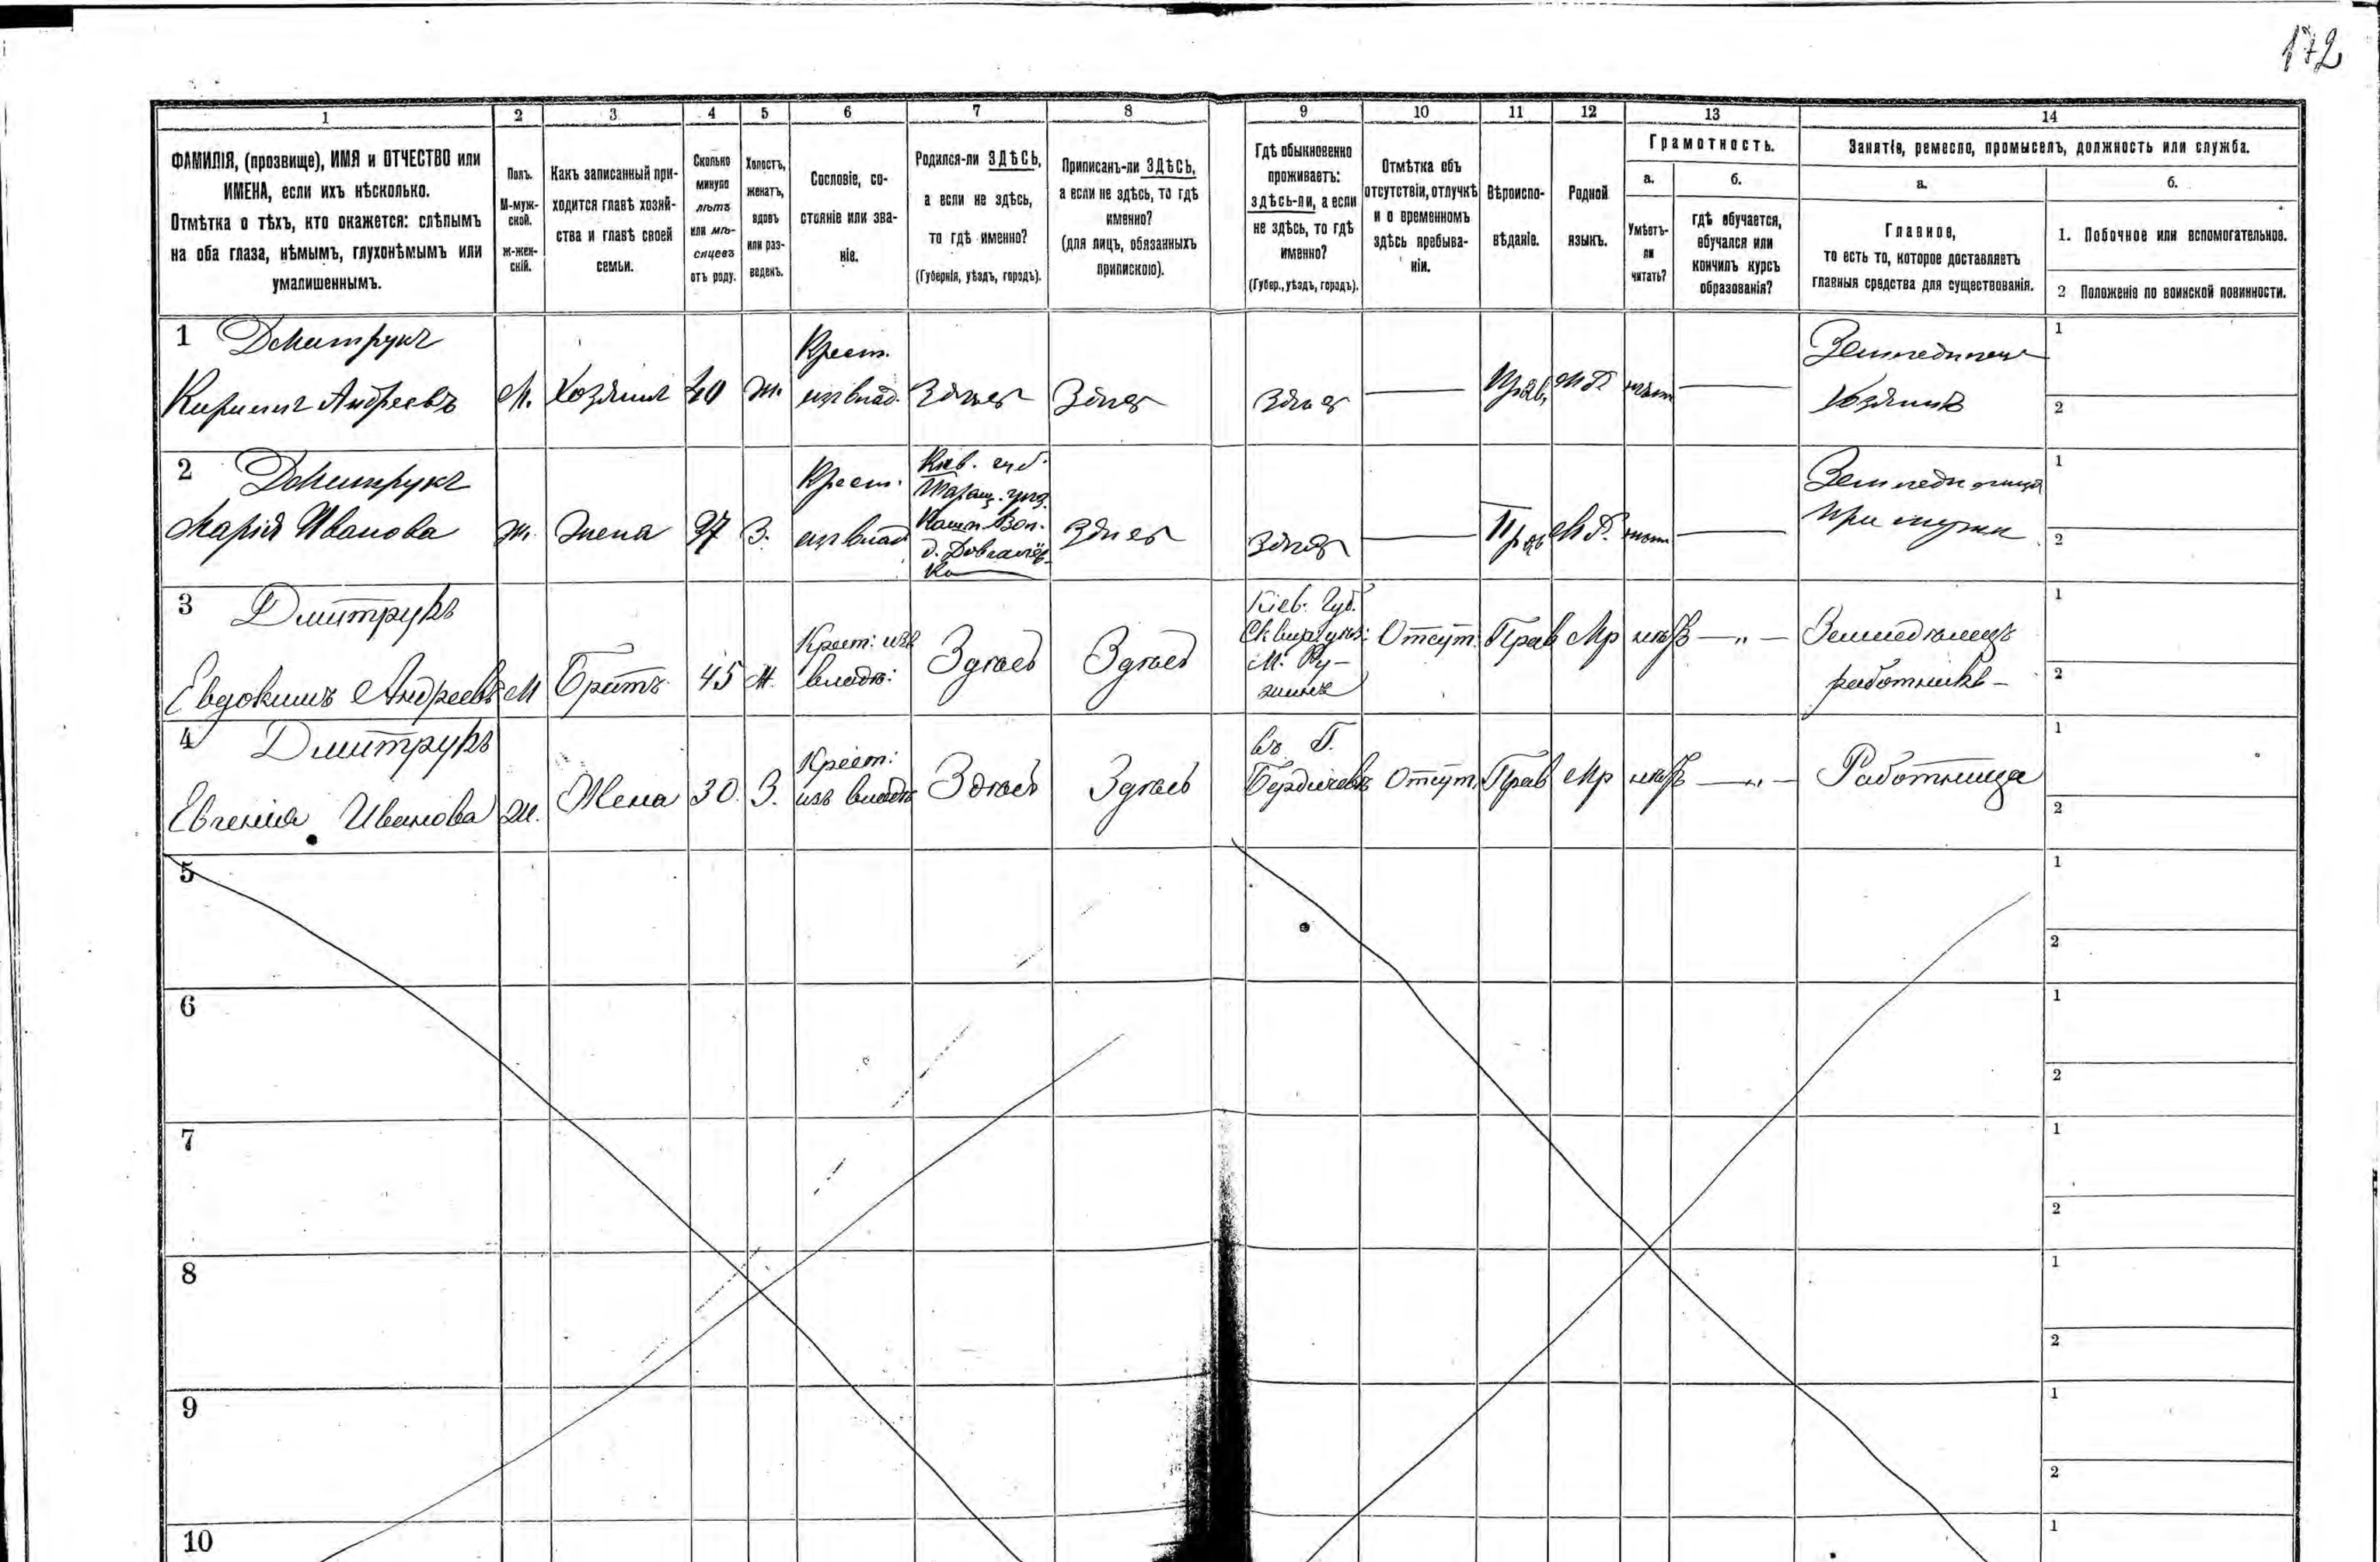 172
1 2 3 4 5 6 7 8 9 10 11 12 13 14
ФАМИЛІЯ, (прозвище), ИМЯ и ОТЧЕСТВО или
ИМЕНА, если ихъ нѣсколько.
Отмѣтка о тѣхъ, кто окажется: слѣпымъ
на оба глаза, нѣмымъ, глухонѣмымъ или
умалишеннымъ.
Полъ.
М-муж-
ской.
Ж-жен-
скій.
Какъ записанный при-
ходится главѣ хозяй-
ства и главѣ своей
семьи.
Сколько
минуло
лѣтъ
или мѣ-
сяцевъ
отъ роду.
Холостъ,
женатъ,
вдовъ
или раз-
веденъ.
Сословіе, со-
стояніе или зва-
ніе.
Родился-ли ЗДѢСЬ,
а если не здѣсь,
то гдѣ именно?
(Губернія, уѣздъ, городъ).
Приписанъ-ли ЗДѢСЬ,
а если не здѣсь, то гдѣ
именно?
(для лицъ, обязанныхъ
припискою).
Гдѣ обыкновенно
проживаетъ:
здѣсь-ли, а если
не здѣсь, то гдѣ
именно?
(Губер., уѣздъ, городъ).
Отмѣтка объ
отсутствіи, отлучкѣ
и о временномъ
здѣсь пребыва-
ніи.
Вѣроиспо-
вѣданіе.
Родной
языкъ.
Грамотность.
а.
Умѣетъ-
ли
читать?
б.
гдѣ обучается,
обучался или
кончилъ курсъ
образованія?
Занятіе, ремесло, промыселъ, должность или служба.
а.
Главное,
то есть то, которое доставляетъ
главныя средства для существованія.
б.
1. Побочное или вспомогательное.
2 Положеніе по воинской повинности.
1 Дмитрукъ
Кирилъ Андреевъ М. Хозяинъ 40 Ж. Крест. изъ влад. Здѣсь Здѣсь Здѣсь — Прав. М Р нѣтъ — Земледѣлецъ Хозяинъ 1 2
2 Дмитрукъ
Марія Иванова Ж. Жена 37 З. Крест. изъ влад.
Кіев. губ.
Таращ. уѣз.
Вол.
д. Довгалёв-
ка
Здѣсь Здѣсь — Прав М Р. нѣтъ — при мужѣ 1 2
3 Дмитрукъ
Евдокимъ Андреевъ М Братъ 45 Ж. Крест: изъ владѣ: Здѣсь Здѣсь
Кіев. Губ.
Сквир. уѣз:
М. Ру-
жинѣ
Отсут. Прав Мр нѣтъ — „ — Земледѣлецъ
работникъ – 1 2
4 Дмитрукъ
Евгенія Иванова Ж. Жена 30. З. Крест: изъ владѣ Здѣсь Здѣсь
въ Г.
Бердичевѣ Отсут. Прав Мр нѣтъ — „ — Работница 1 2
5 1 2
6 1 2
7 1 2
8 1 2
9 1 2
10 1